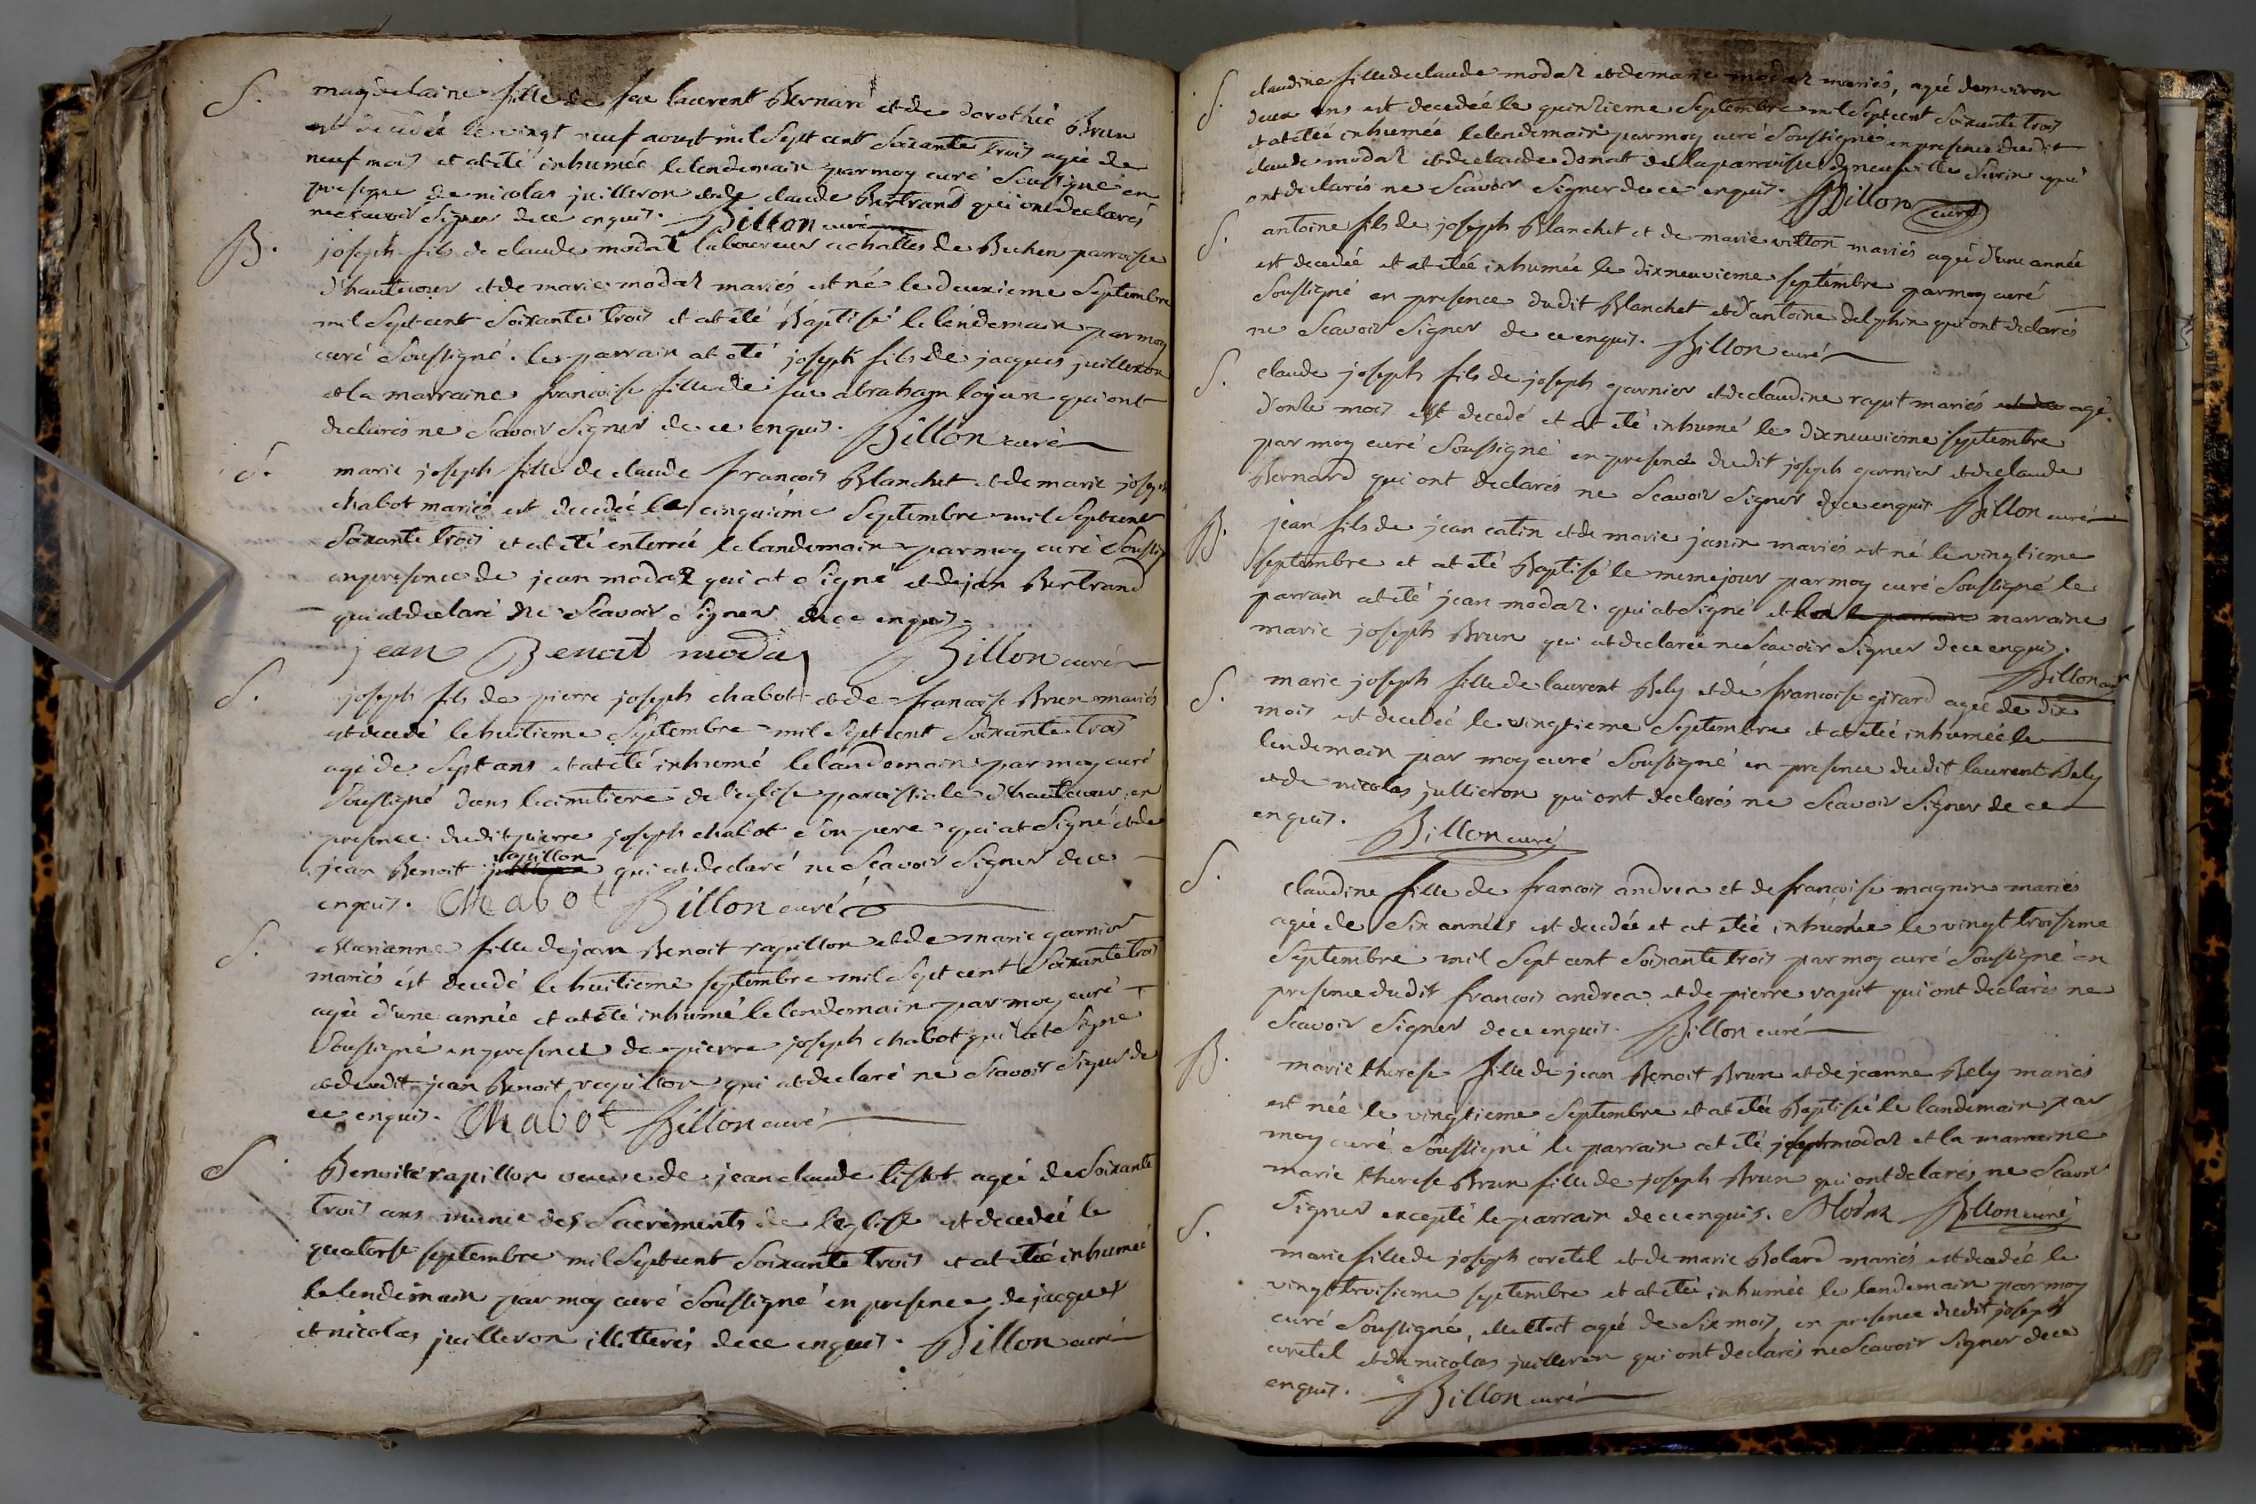 S. magdelaine fille de feu laurent Bernard et de dorothée Brun
est decedée le vingt neuf aoust mil sept cent soixante trois agée de
neuf mois et at été inhumée le lendemain par moy curé soussigné en
presence de nicolas juilleron et de claude Bertrand qui ont declarés
ne scavoir signer de ce enquis. Billon curé
B. joseph fils de claude modaz laboureur a challes de Bechen parroisse
d'hautecour et de marie modaz mariés est né le deuxieme septembre
mil sept cent soixante trois et at été Baptisé le lendemain par moy
curé soussigné. les parrain at été joseph fils de jacques juilleron
et la marraine francoise fille de feu abraham loyan qui ont
declarés ne scavoir signer de ce enquis. Billon curé
S. marie joseph fille de claude francois Blanchet et de marie joseph
chabot mariés est decedée le cinquieme septembre mil sept cent
soixante trois et at été enterrée le landemain par moy curé soussig
en presence de jean modaz qui at signé et de jan Bertrand
qui at declaré ne scavoir signer de ce enquis.
jean Benoit modaz Billon curé
S. joseph fils de pierre joseph chabot et de francoise Brun mariés
est decedé le huitieme septembre mil sept cent soixante trois
agé de sept ans et at été inhumé le landemain par moy curé
soussigné dans le cimitiere de l'eglise paroissiale d'hautecour en
presence dudit pierre joseph chabot son pere qui at signé et de
jean Benoit rapillon qui at declaré ne scavoir signer de ce
enquis. Chabot Billon curé
S. Marianne fille de jean Benoit rapillon et de marie garnier
mariés est decedé le huitieme septembre mil sept cent soixante trois
agée d'une année et at été inhumé le lendemain par moy curé
soussigné en presence de pierre joseph chabot qui at signé
et dudit jean Benoit rapillon qui at declaré ne scavoir signer de
ce enquis. Chabot Billon curé
S. Benoite rapillon veuve de jean claude tissot agée de soixante
trois ans munie des sacrements de l'eglise est decedée le
quatorse septembre mil sept cent soixante trois et at etée inhumée
le lendemain par moy curé soussigné en presence de jacques
et nicolas juilleron illitterés de ce enquis. Billon curé
S. claudine fille de claude modaz et de marie modaz mariés, agée denviron
deux ans est decedée le quinzieme septembre mil sept cent soixante trois
et at etée inhumée le lendemain par moy curé soussigné en presence dudit
claude modaz et de claude donat de la parroisse de qui
ont declarés ne scavoir signer de ce enquis. Billon curé
S. antoine fils de joseph Blanchet et de marie mariés agé d'une année
est decedée et at etée inhumée le dixneuvieme septembre par moy curé
soussigné en presence dudit Blanchet et d'antoine delphin qui ont declarés
ne scavoir signer de ce enquis. Billon curé
S. claude joseph fils de joseph garnier et de claudine raput mariés et de agé
d'onze mois est decedé et at été inhumé le dixneuvieme septembre
par moy curé soussigné en presence dudit joseph garnier et de claude
Bernard qui ont declarés ne scavoir signer de ce enquis Billon curé
B. jean fils de jean catin et de marie janin mariés est né le vingtieme
septembre et at été Baptisé le meme jour par moy curé soussigné le
parrain at été jean modaz. qui at signé et la le parrain marraine
marie joseph Brun qui at declarée ne scavoir signer de ce enquis.
Billon curé
S. marie joseph fille de laurent Bely et de francoise girard agée de dix
mois est decedée le vingtieme septembre et at etée inhumée le
lendemain par moy curé soussigné en presence dudit laurent Bely
et de nicolas jullieron qui ont declarés ne scavoir signer de ce
enquis. Billon curé
S. claudine fille de francois andrea et de francoise magnin mariés
agée de six années est decedée et at etée inhumée le vingt troisieme
septembre mil sept cent soixante trois par moy curé soussigné en
presence dudit francois andrea et de pierre raput qui ont declarés ne
scavoir signer de ce enquis. Billon curé
B. marie therese fille de jean Benoit Brun et de jeanne Bely mariés
est née le vingtieme septembre et at etée Baptisée le landemain par
moy curé soussigné le parrain at été joseph modaz et la marraine
marie therese Brun fille de joseph Brun qui ont declarés ne scavoir
signer excepté le parrain de ce enquis. Modaz Billon curé
S. marie fille de joseph coretel et de marie Bolard mariés est decedée le
vingt troisieme septembre et at etée inhumée le landemain par moy
curé soussigné, elle etoit agée de six mois, en presence dudit joseph
coretel et de nicolas juilleron qui ont declarés ne scavoir signer de ce
enquis. Billon curé